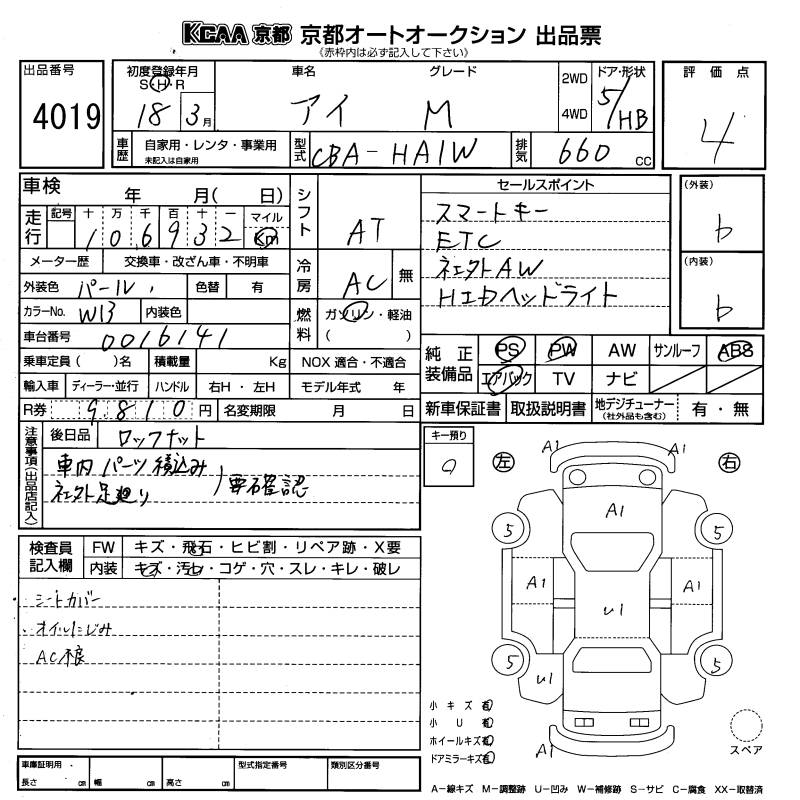 KCAA 京都 京都オートオークション 出品票
《赤枠内は必ず記入して下さい》
出品番号
4019
初度登録年月
S・H・R
18 3月
車名 グレード
アイ M
2WD
4WD
ドア・形状
5/HB
評価点
4
車歴
自家用・レンタ・事業用
未記入は自家用
型式
CBA-HA1W
排気
660 cc
車検 年 月( 日)
走行
記号 十 万 千 百 十 一 マイル
106932 Km
シフト
AT
セールスポイント
スマートキー
ETC
社外AW
HIDヘッドライト
(外装)
b
(内装)
b
メーター歴 交換車・改ざん車・不明車
冷房
AC 無
外装色 パール 色替 有
カラーNo. W13 内装色
燃料
ガソリン・軽油
( )
車台番号 0016141
純正装備品
PS PW AW サンルーフ ABS
エアバック TV ナビ
乗車定員( )名 積載量 Kg NOX 適合・不適合
輸入車 ディーラー・並行 ハンドル 右H・左H モデル年式 年
R券 9,810円 名変期限 月 日
新車保証書 取扱説明書 地デジチューナー(社外品も含む) 有・無
注意事項(出品店記入)
後日品 ロックナット
車内パーツ積込み
社外足廻り
要確認
キー預り
a
左 右
A1 A1
A1
5 5
A1 A1
U1
5 5
U1
A1
検査員記入欄
FW キズ・飛石・ヒビ割・リペア跡・X要
内装 キズ・汚れ・コゲ・穴・スレ・キレ・破レ
シートカバー
オイルにじみ
AC不良
小キズ有
小U有
ホイールキズ有
ドアミラーキズ有
スペア
車庫証明用
長さ cm 幅 cm 高さ cm
型式指定番号 類別区分番号
A−線キズ M−調整跡 U−凹み W−補修跡 S−サビ C−腐食 XX−取替済